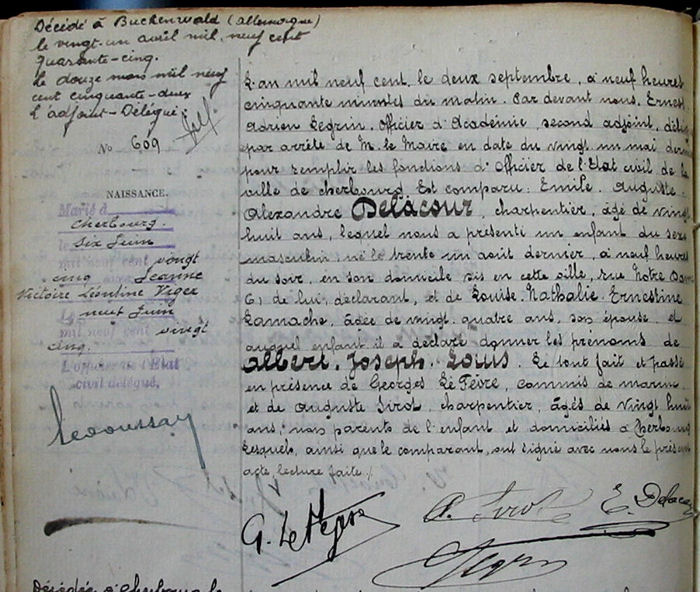 Décédé à Buchenwald (allemagne)
le vingt-un avril mil neuf cent
quarante-cinq.
Le douze mars mil neuf
cent cinquante-deux
L'adjoint-Délégué:
No 609
NAISSANCE.
Marié à
Cherbourg.
le six Juin
mil neuf cent vingt
cinq Jeanne
Victoire Léontine Viger
Le neuf Juin
mil neuf cent vingt
cinq.
L'officier de l'Etat
civil délégué,
L'an mil neuf cent, le deux septembre, à neuf heures
cinquante minutes du matin. Par devant nous, Ernest
Adrien Legrin, Officier d'Académie, second adjoint, délé
par arrêté de M. le Maire en date du vingt un mai dern
pour remplir les fonctions d'Officier de l'Etat civil de la
ville de Cherbourg Est comparu: Emile, Auguste
Alexandre Delacour, charpentier, âgé de vingt
huit ans, lequel nous a présenté un enfant du sexe
masculin, né le trente un août dernier, à neuf heures
du soir, en son domicile sis en cette ville, rue Notre Dame
6, de lui, déclarant, et de Louise, Nathalie, Ernestine
Lamache, âgée de vingt-quatre ans, son épouse et
auquel enfant il a déclaré donner les prénoms de
Albert, Joseph, Louis. Le tout fait et passé
en présence de Georges Le Fèvre, commis de marine
et de Auguste Sirot, charpentier, âgés de vingt huit
ans, non parents de l'enfant et domiciliés à Cherbourg
Lesquels, ainsi que le comparant, ont signé avec nous le présent
acte lecture faite./.
G. Le Fèvre
A. Sirot
E. Delacou